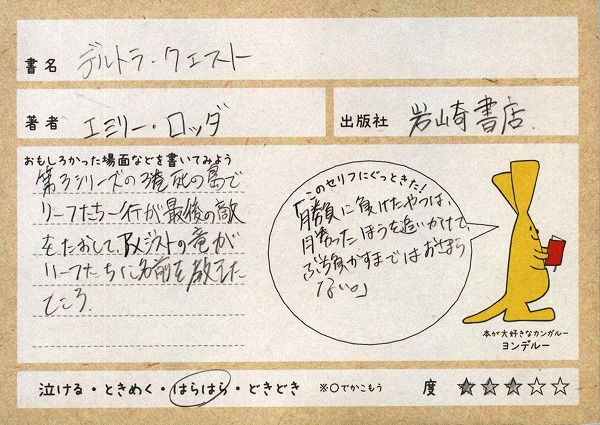 書名 デルトラ・クエスト
著者 エミリー・ロッダ
出版社 岩崎書店
おもしろかった場面などを書いてみよう
第3シリーズの3巻死の島で
リーフたち一行が最後の敵
をたおして、アメジストの竜が
リーフたちに名前を教えた
ところ。
このセリフにぐっときた!
「勝負に負けたやつは、
勝ったほうを追いかけて、
ぶち負かすまではおさまら
ない。」
本が大好きなカンガルー
ヨンデルー
泣ける・ときめく・はらはら・どきどき ※○でかこもう 度 ★★★☆☆